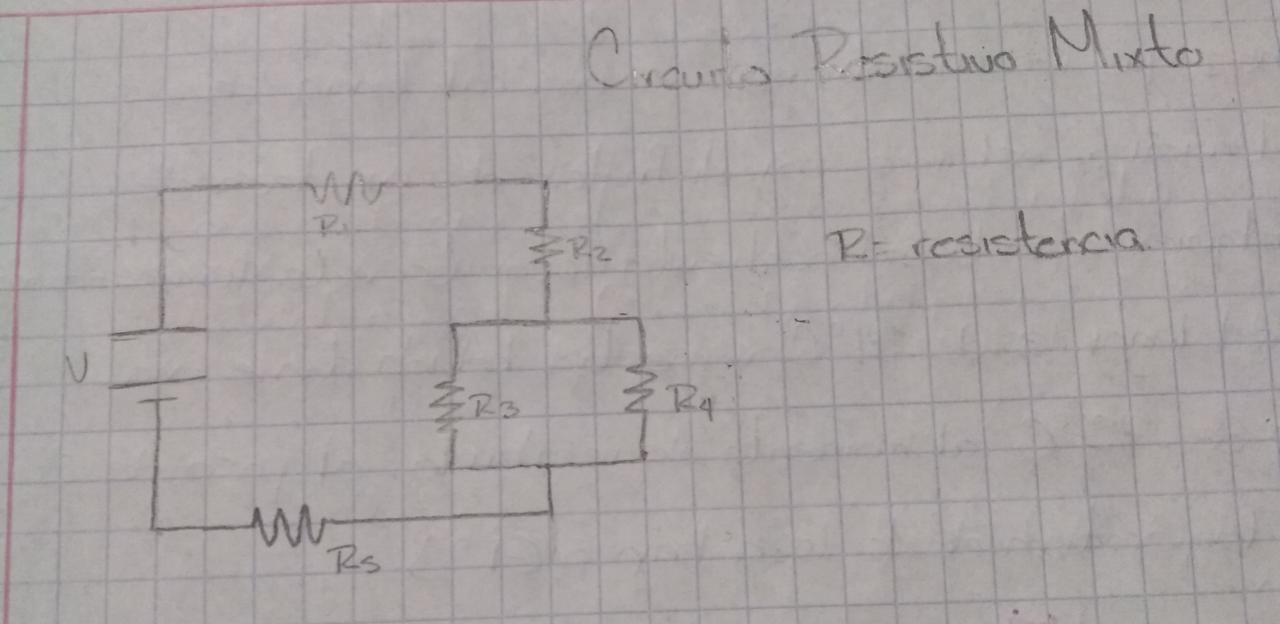 Circuito Resistivo Mixto
R1
R2
R= resistencia
V
R3
R4
R5